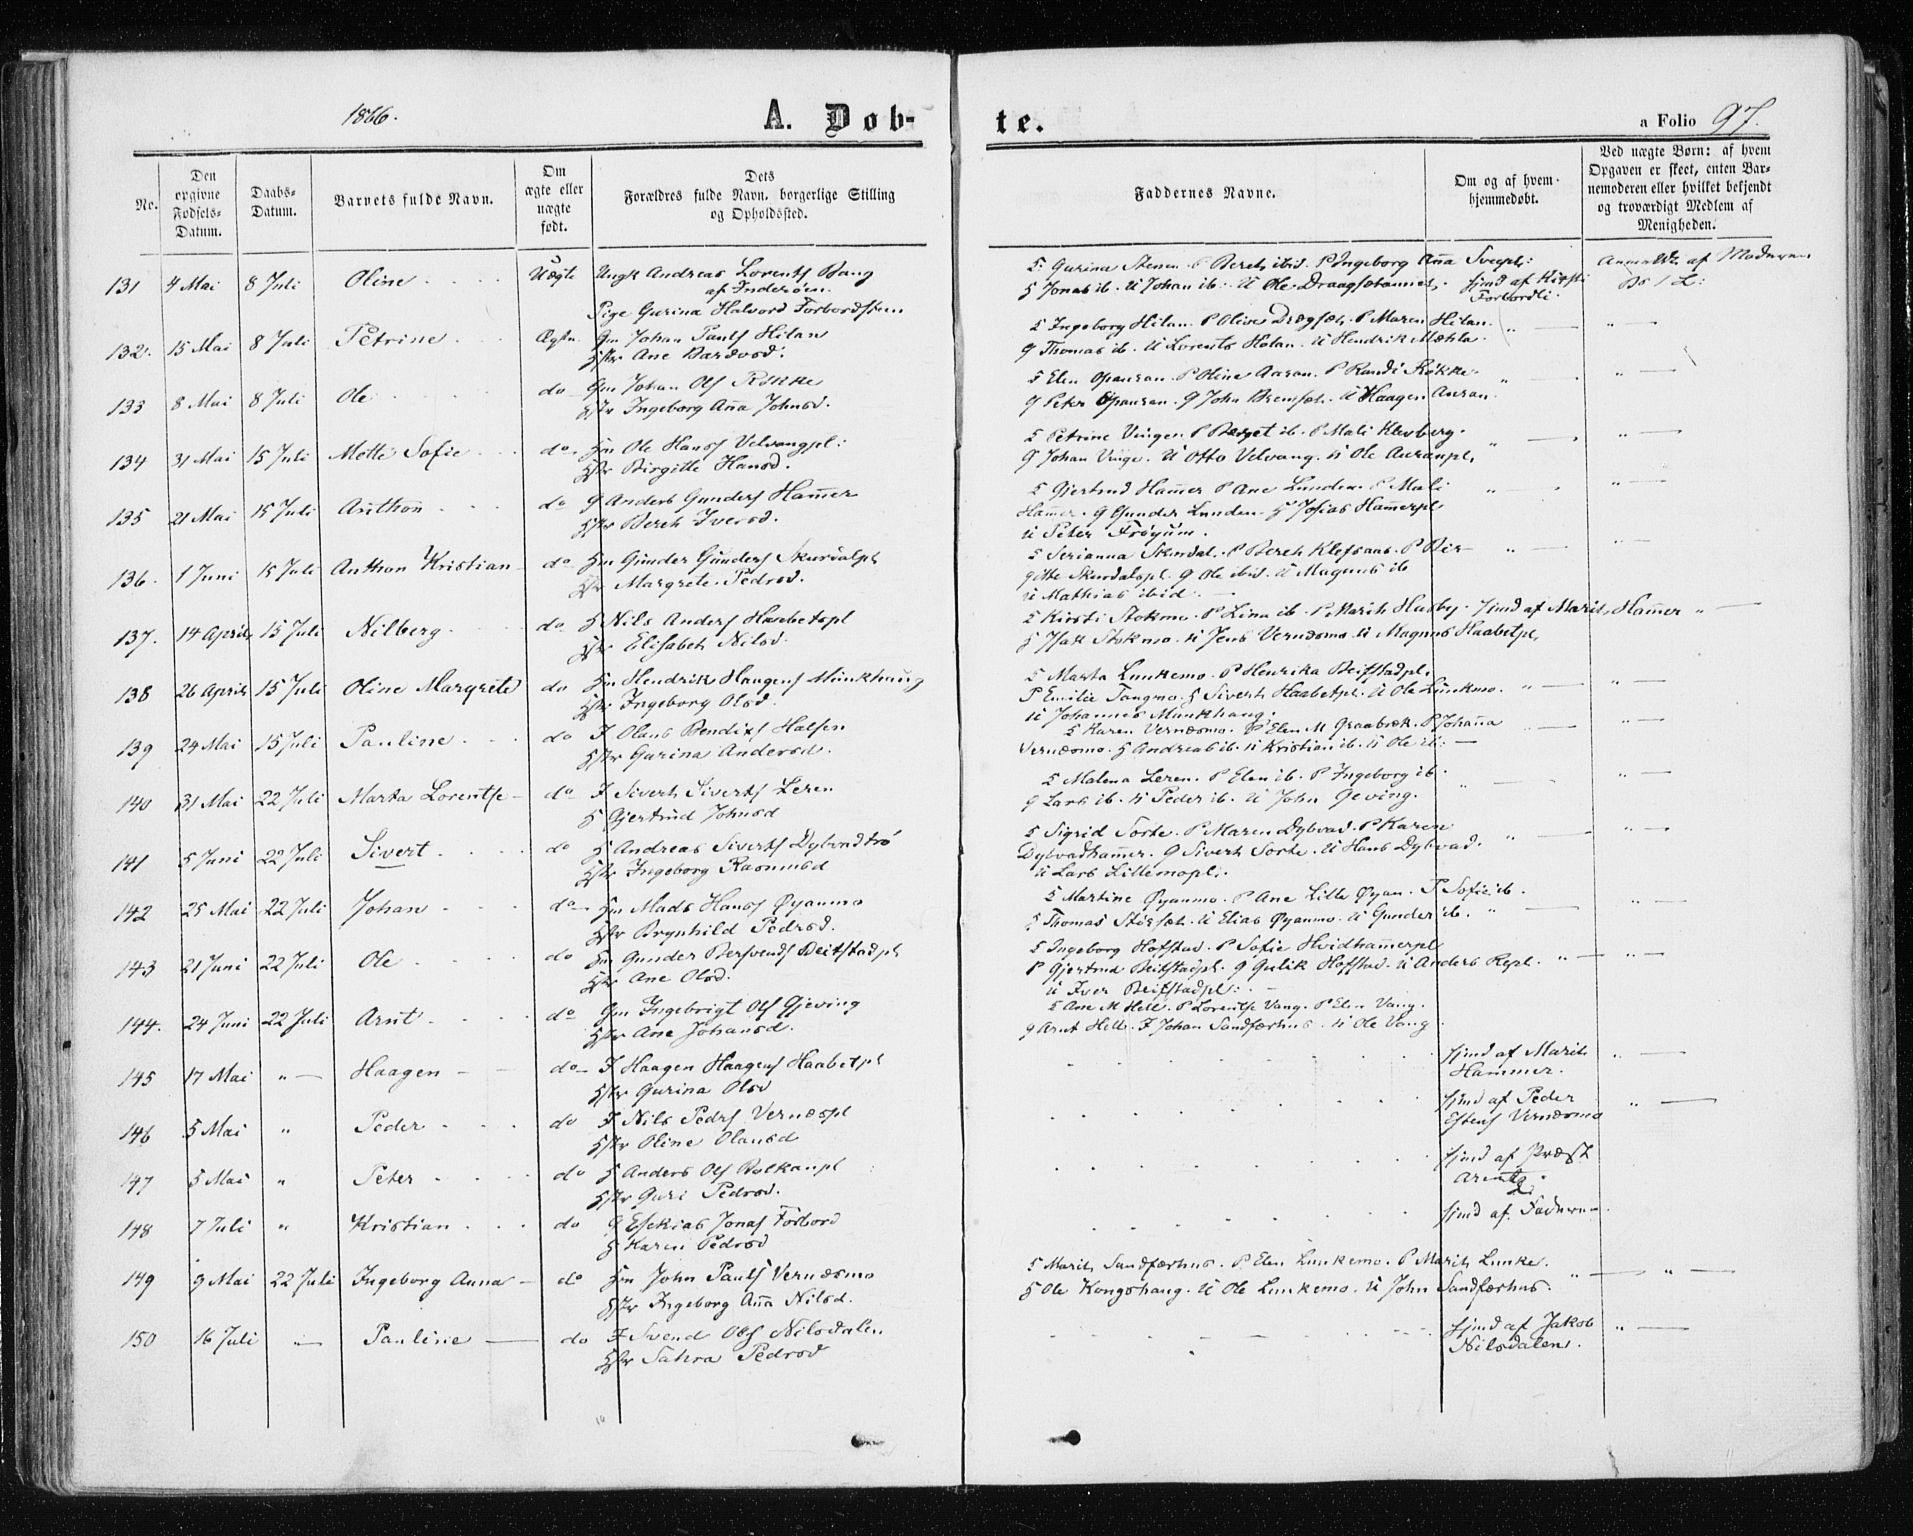 1866.
A. Døb-
te.
a Folio 97.
No.
Den opgivne Fødsels-Datum.
Daabs-Datum.
Barnets fulde Navn.
Om ægte eller uægte født.
Dets Forældres fulde Navn, borgerlige Stilling og Opholdssted.
Faddernes Navne.
Om og af hvem hjemmedøbt.
Ved uægte Børn: af hvem Opgaven er skeet, enten Barnemoderen eller hvilket bekjendt og troværdigt Medlem af Menigheden.
131 4 Mai 8 Juli Oline Uægte Ungk Andreas Lorents Bang
af Inderøen.
Pige Gurina Halvord Forbordsteen
K Gurina Stenen. Bereth ibid. P Ingeborg Aña
G Jonas ib. U Johan ib. U Ole
hjmd af Kirsti Forbordli.
Anmeldt af Moderen
132. 15 Mai 8 Juli Petrine Ægte. Gm Johan Pauls Hilan
Hstr Ane Bardosd.
K Ingeborg Hilan. P Olive P Maren Hilan.
G Thomas ib. U Lorents Holan. U Hendrik Mæhla.
133 8 Mai 8 Juli Ole do Gm Johan Ols Røkke
Hstr Ingeborg Aña Johnsd.
K Elen Opauran. P Oline Auran. P Randi Røkke.
G Peter Opauran. G John U Haagen Auran.
134 31 Mai 15 Juli Mette Sofie do Hm Ole Hans Velvangpl:
Hstr Birgitte Hansd.
K Petrine Vinge. P Berget ib. P Mali Klevberg.
G Johan Vinge. U Otto Velvang. U Ole Auranpl.
135 21 Mai 15 Juli Anthon do G Anders Gunders Ham̄er
Hstr Bereth Iversd.
K Gjertrud Ham̄er P Ane Lunden. P Mali
Ham̄er. G Gunder Lunden. H Josias Ham̄erpl.
U Peter Frøyum.
136. 1 Juni 15 Juli Anthon Kristian do Hm Gunder Gunders Skurdalpl
Hstr Margrete Pedrsd.
K Serianna Skurdal. P Bereth Klefsaas. P Bir-
gitte Skurdalspl. G Ole ibid. U Magnus ib
U Mathias ibid.
137. 14 April 15 Juli Nilberg do H Nils Anders Haabetspl
Hstr Elisabeth Nilsd.
K Kirsti Stokmo. P Lina ib. P Marith Husby. hjmd af Marith Ham̄er
H Isak Stokmo. U Jens Vernesmo. U Magnus Haabetpl.
138 26 April 15 Juli Oline Margrete do Hm Hendrik Haagens Munkhaug
Hstr Ingeborg Olsd.
K Marta Lunkemo. P Henrika Beitstadpl.
P Emilie Tangmo. H Siverth Haabetpl. U Ole Lunkmo.
U Johannes Munkhaug.
139 24 Mai 15 Juli Pauline do I Olaus Bendixs Halsen
Hstr Gurina Andersd.
K Karen Vernesmo. P Elen M Graabræk. P Johaña
Vernæsmo. H Andreas ib. U Kristian ib. U Ole ib:
140 31 Mai 22 Juli Marta Lorentse do I Siverth Siverts Leren
H Gjertrud Johnsd
K Malena Leren. P Elen ib. P Ingeborg ib.
G Lars ib. U Peder ib. U John Geving.
141 5 Juni 22 Juli Sivert do H Andreas Siverts Dybvadtrø
Hstr Ingeborg Rasmusd
K Sigrid Sorte. P Maren Dybvad. P Karen
Dybvadham̄er. G Siverth Sorte. U Hans Dybvad.
U Lars Lillemopl.
142 25 Mai 22 Juli Johan do Hm Mads Hans Øyanmo
Hstr Brynhild Pedrsd.
K Martine Øyanmo. P Ane Lille Øyan. P Sofie ib.
H Thomas U Elias Øyanmo. U Gunder ib.
143 21 Juni 22 Juli Ole do Hm Gunder Bersvends Beitstadpl
Hstr Ane Olsd.
K Ingeborg Hofstad. P Sofie Hvidham̄erpl
P Gjertrud Beitstadpl. G Gulik Hofstad. U Anders Repl.
U Iver Beitstadpl:
144. 24 Juni 22 Juli Arnt do Gm Ingebrigt Ols Gjeving
Hstr Ane Johansd.
K Ane M Hell. P Lorentse Vang. P Elen Vang.
G Arnt Hell. I Johan Sandfærhus. U Ole Vang
145 17 Mai " Haagen do I Haagen Haagens Haabetpl
Hstr Gurina Olsd
hjmd af Marith Hammer.
146 5 Mai " Peder do I Nils Pedrs Vernæspl
Hstr Oline Olausd
hjmd af Peder Estens Vernæsmo
147 5 Mai " Peter do H Anders Ols Balkanpl
Hstr Guri Pedrsd.
hjmd af Præst
148 7 Juli " Kristian do G Esekias Jonas Forbord
H Karen Pedrsd
hjmd af Faderen
149 9 Mai 22 Juli Ingeborg Anna do Hm John Pauls Vernæsmo
Hstr Ingeborg Aña Nilsd.
K Marith Sandfærhus. P Elen Lunkemo. P Marith Lunke.
H Ole Kongshaug. U Ole Lunkemo. U John Sandfærhus.
150 16 Juli Pauline do I Svend Ols Nilsdalen
Hstr Sahra Pedrsd
hjmd af Jakob Nilsdalen.